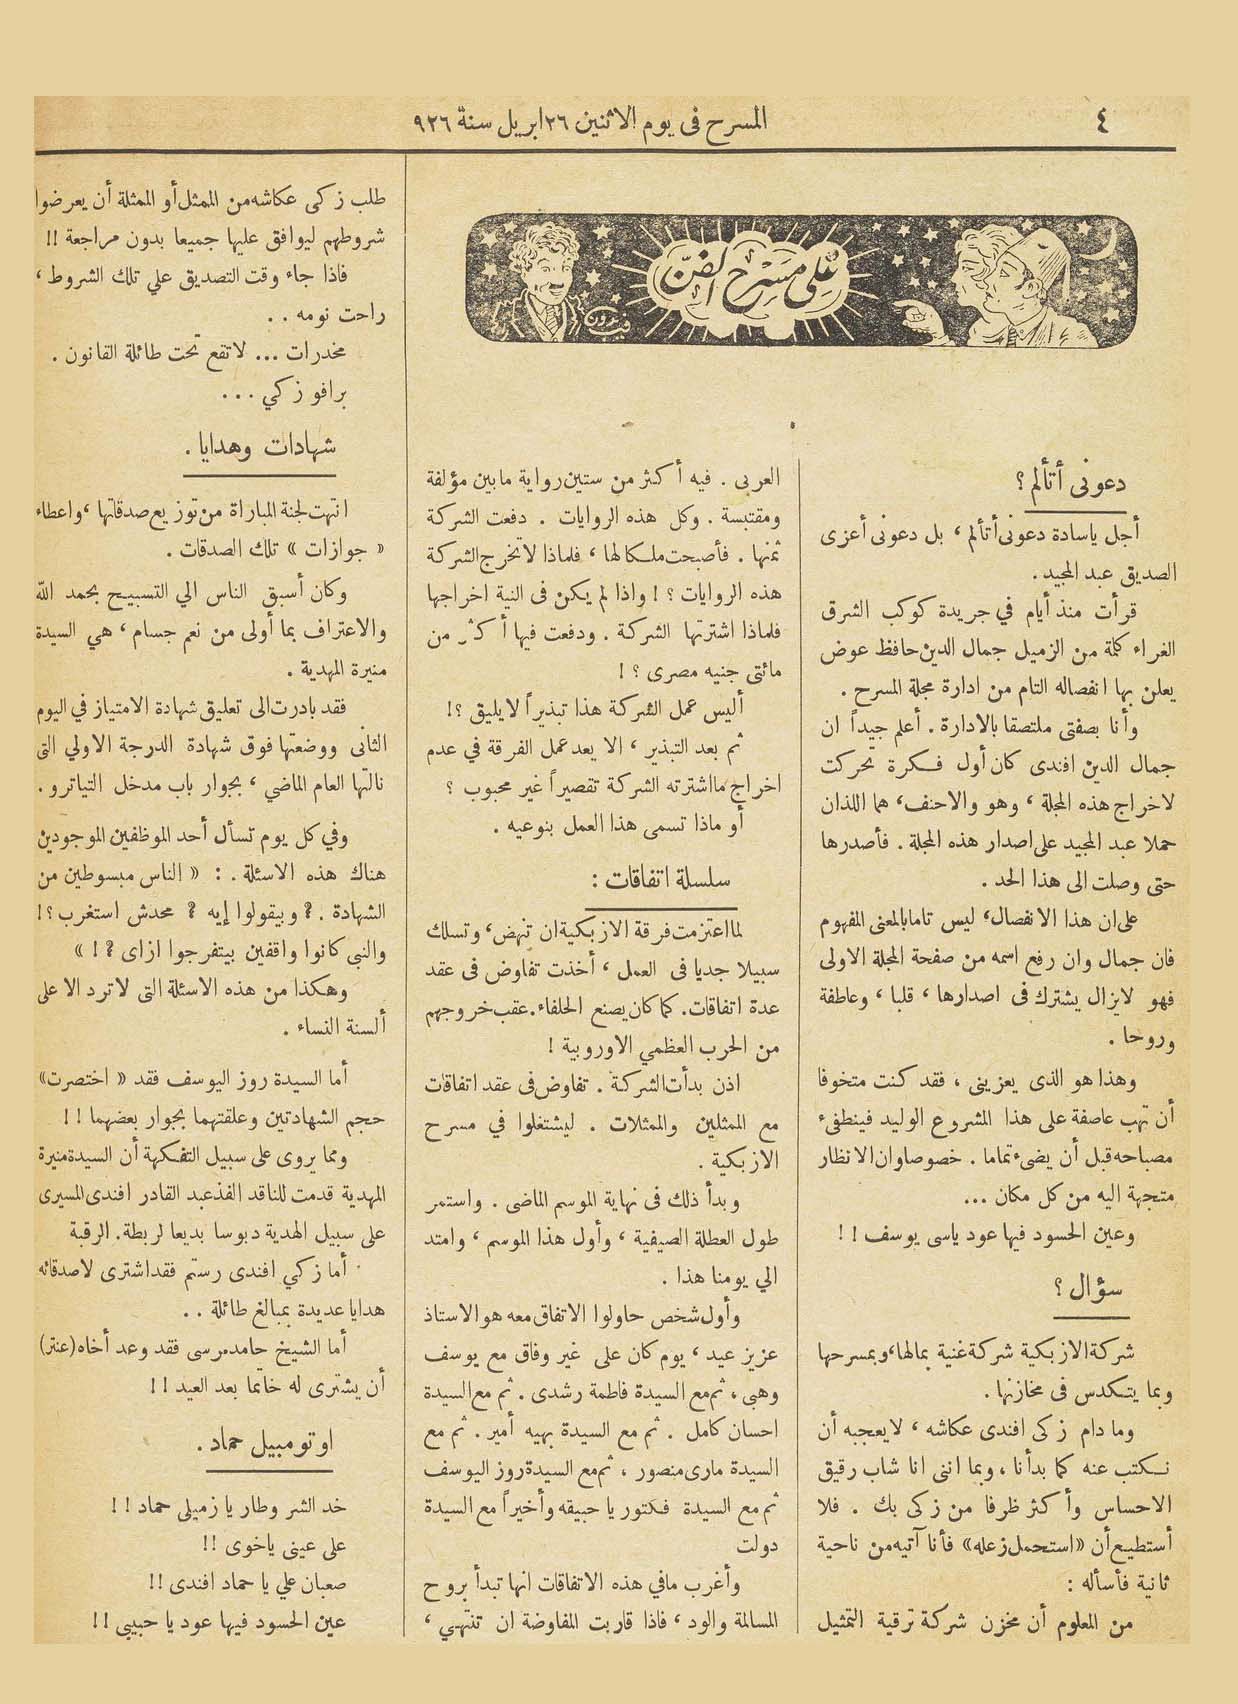 ٤
المسرح في يوم الاثنين ٢٦ ابريل سنة ٩٢٦
على مسرح الفن
دعونى أتألم ؟
أجل ياسادة دعونى أتألم ، بل دعونى أعزى
الصديق عبد المجيد .
قرأت منذ أيام في جريدة كوكب الشرق
الغراء كلمة من الزميل جمال الدين حافظ عوض
يعلن بها انفصاله التام من ادارة مجلة المسرح .
وأنا بصفتى ملتصقا بالادارة . أعلم جيداً ان
جمال الدين افندى كان أول فكرة تحركت
لاخراج هذه المجلة ، وهو والاحنف، هما اللذان
حملا عبد المجيد على اصدار هذه المجلة . فأصدرها
حتى وصلت الى هذا الحد .
على ان هذا الانفصال، ليس تاما بالمعنى المفهوم
فان جمال وان رفع اسمه من صفحة المجلة الاولى
فهو لايزال يشترك فى اصدارها ، قلبا ، وعاطفة
وروحا .
وهذا هو الذى يعزينى ، فقد كنت متخوفا
أن تهب عاصفة على هذا المشروع الوليد فينطفىء
مصباحه قبل أن يضىء تماما . خصوصا وان الانظار
متجهة اليه من كل مكان ...
وعين الحسود فيها عود ياسى يوسف ! !
سؤال ؟
شركة الازبكية شركة غنية بمالها، وبمسرحها
وبما يتكدس فى مخازنها .
وما دام زكى افندى عكاشه ، لايعجبه أن
نكتب عنه كما بدأنا ، وبما اننى انا شاب رقيق
الاحساس وأكثر ظرفا من زكى بك . فلا
أستطيع أن «استحمل زعله» فأنا آتيه من ناحية
ثانية فأسأله :
من المعلوم أن مخزن شركة ترقية التمثيل
العربى . فيه أكثر من ستين رواية مابين مؤلفة
ومقتبسة . وكل هذه الروايات . دفعت الشركة
ثمنها . فأصبحت ملكا لها ، فلماذا لاتخرج الشركة
هذه الروايات ؟ ! واذا لم يكن فى النية اخراجها
فلماذا اشترتها الشركة . ودفعت فيها أكثر من
مائتى جنيه مصرى ؟ !
أليس عمل الشركة هذا تبذيراً لايليق ؟!
ثم بعد التبذير ، الا يعد عمل الفرقة في عدم
اخراج مااشترته الشركة تقصيراً غير محبوب ؟
أو ماذا تسمى هذا العمل بنوعيه .
سلسلة اتفاقات :
لما اعتزمت فرقة الازبكية ان تنهض، وتسلك
سبيلا جديا فى العمل ، أخذت تفاوض فى عقد
عدة اتفاقات. كما كان يصنع الحلفاء. عقب خروجهم
من الحرب العظمي الاوروبية !
اذن بدأت الشركة . تفاوض فى عقد اتفاقات
مع الممثلين والممثلات . ليشتغلوا في مسرح
الازبكية .
وبدأ ذلك فى نهاية الموسم الماضى . واستمر
طول العطلة الصيفية ، وأول هذا الموسم ، وامتد
الي يومنا هذا .
وأول شخص حاولوا الاتفاق معه هو الاستاذ
عزيز عيد ، يوم كان على غير وفاق مع يوسف
وهبى ، ثم مع السيدة فاطمة رشدى . ثم مع السيدة
احسان كامل . ثم مع السيدة بهيه أمير . ثم مع
السيدة مارى منصور ، ثم مع السيدة روز اليوسف
ثم مع السيدة فكتوريا حبيقه وأخيراً مع السيدة
دولت
وأغرب مافي هذه الاتفاقات انها تبدأ بروح
المسالمة والود ، فاذا قاربت المفاوضة ان تنتهي ،
طلب زكى عكاشه من الممثل أو الممثلة أن يعرضوا
شروطهم ليوافق عليها جميعا بدون مراجعة !!
فاذا جاء وقت التصديق علي تلك الشروط ،
راحت نومه . .
مخدرات ... لاتقع تحت طائلة القانون .
برافو زكي ...
شهادات وهدايا .
انتهت لجنة المباراة من توزيع صدقاتها ، واعطاء
« جوازات » تلك الصدقات .
وكان أسبق الناس الي التسبيح بحمد الله
والاعتراف بما أولى من نعم جسام ، هي السيدة
منيرة المهدية .
فقد بادرت الى تعليق شهادة الامتياز في اليوم
الثانى ووضعتها فوق شهادة الدرجة الاولي التى
نالتها العام الماضي ، بجوار باب مدخل التياترو .
وفي كل يوم تسأل أحد الموظفين الموجودين
هناك هذه الاسئلة . : « الناس مبسوطين من
الشهادة . ؟ وبيقولوا إيه ؟ محدش استغرب ؟ !
والنبى كانوا واقفين بيتفرجوا ازاى ؟ ! »
وهكذا من هذه الاسئلة التى لاترد الا على
ألسنة النساء .
أما السيدة روز اليوسف فقد « اختصرت»
حجم الشهادتين وعلقتهما بجوار بعضهما ! !
ومما يروى على سبيل التفكهة أن السيدة منيرة
المهدية قدمت للناقد الفذ عبد القادر افندى المسيرى
على سبيل الهدية دبوسا بديعا لربطة. الرقبة
أما زكي افندى رستم فقد اشترى لاصدقائه
هدايا عديدة بمبالغ طائلة . .
أما الشيخ حامد مرسى فقد وعد أخاه (عنتر)
أن يشترى له خاتما بعد العيد ! !
اوتومبيل حماد .
خد الشر وطار يا زميلى حماد ! !
على عينى ياخوى !!
صعبان علي يا حماد افندى !!
عين الحسود فيها عود يا حبيبى !!